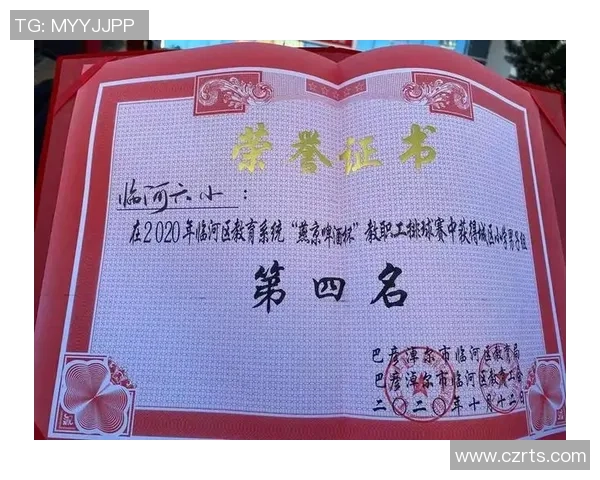 TG: MYYJJPP
荣誉证书
临河六小：
在2020年临河区教育系统“燕京啤酒杯”教职工排球赛中获得城区小学男子组
第四名
巴彦淖尔市临河区教育局
巴彦淖尔市临河区教育工会
二〇二〇年十月十二日
www.czrts.com